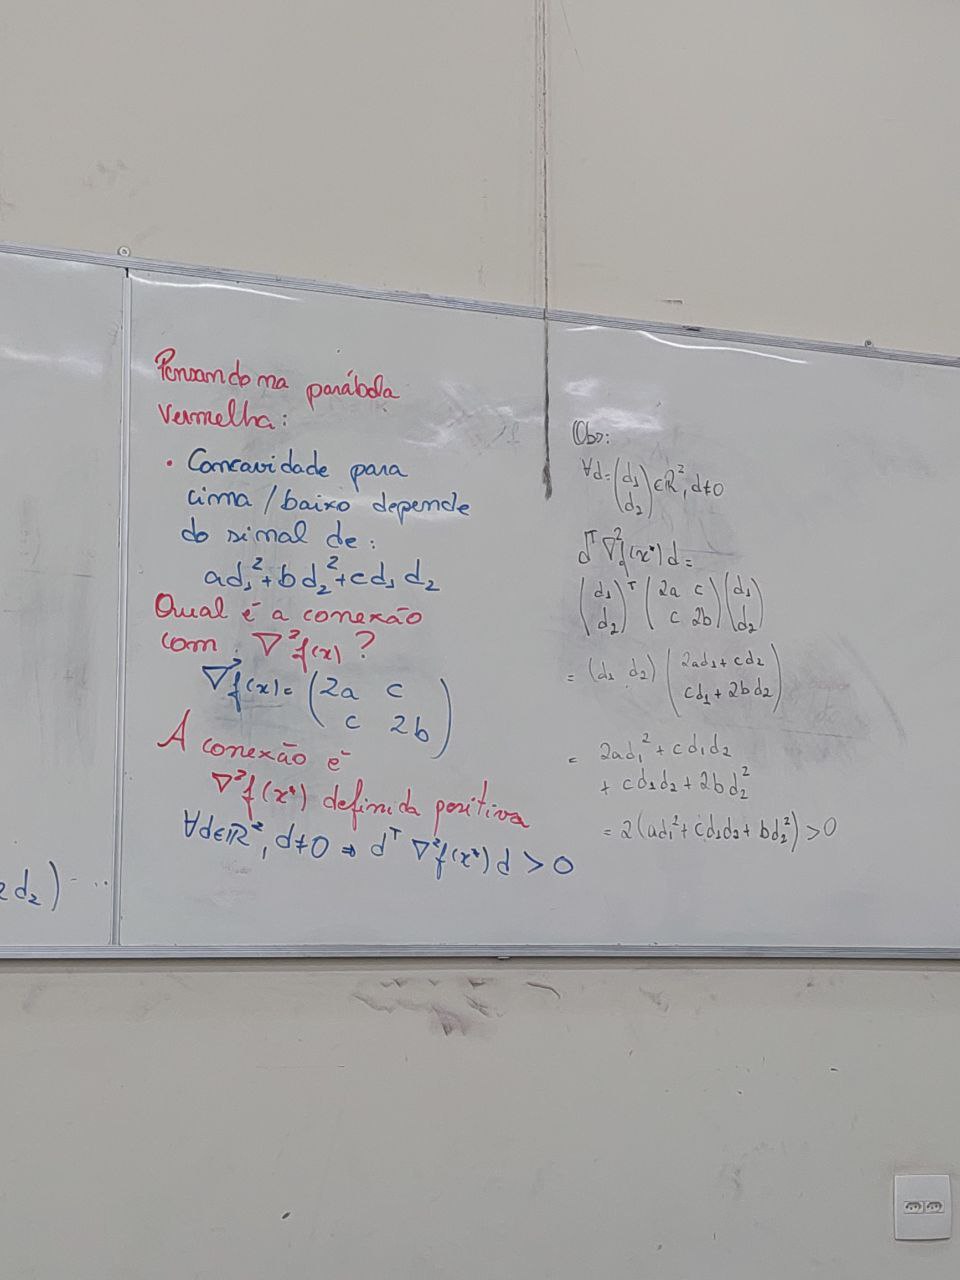 2d₂) ...
Pensando na parábola
vermelha:
• Concavidade para
cima / baixo depende
do sinal de:
ad₁² + bd₂² + cd₁d₂
Qual é a conexão
com ∇²f(x)?
∇²f(x) = (2a c
c 2b)
A conexão é
∇²f(x*) definida positiva
∀d∈ℝ², d≠0 ⇒ dᵀ∇²f(x*)d > 0
Obs:
∀d = (d₁
d₂) ∈ℝ², d≠0
dᵀ∇²f(x*)d =
(d₁
d₂)ᵀ (2a c
c 2b) (d₁
d₂)
= (d₁ d₂) (2ad₁ + cd₂
cd₁ + 2bd₂)
= 2ad₁² + cd₁d₂
+ cd₁d₂ + 2bd₂²
= 2(ad₁² + cd₁d₂ + bd₂²) > 0